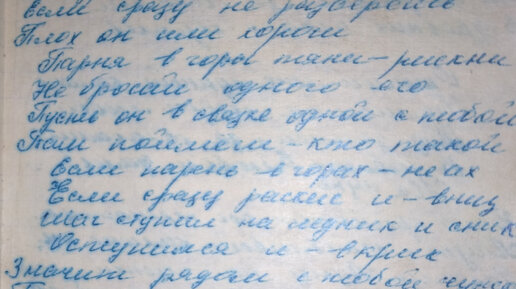 Если сразу не разберёшь
Плох он или хорош
Парня в горы тяни - рискни
Не бросай одного его
Пусть он в связке одной с тобой
Там поймёшь - кто такой
Если парень в горах - не ах
Если сразу раскис и - вниз
Шаг ступил на ледник и сник
Оступился и - в крик
Значит рядом с тобой чужой